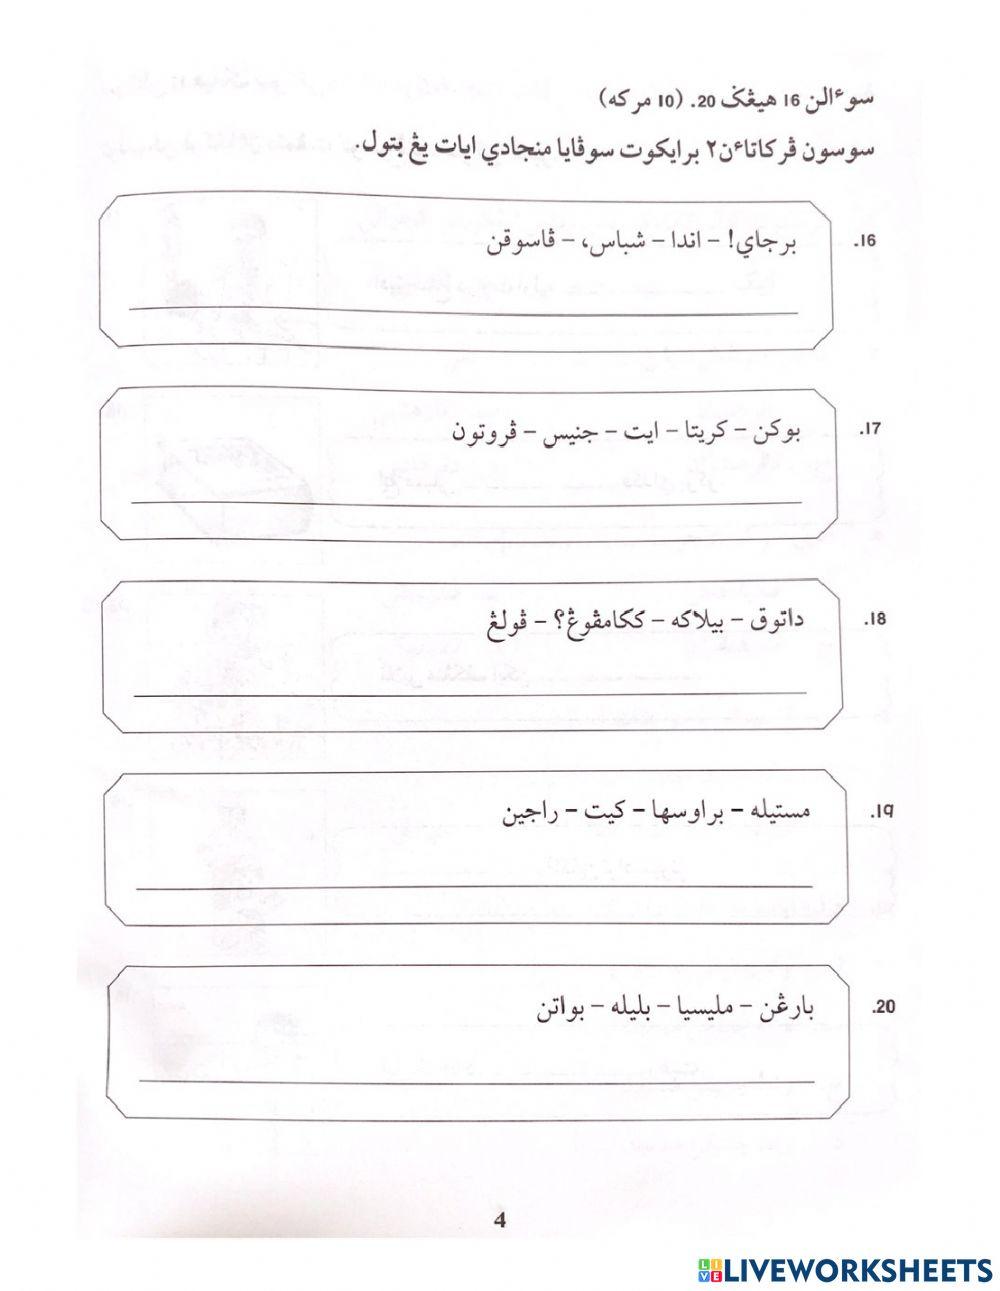 سوءالن 16 هيڠݢ 20. (10 مركه)
سوسون ڤركاتاءن٢ برايكوت سوڤايا منجادي ايات يڠ بتول.
16. برجاي! - اندا - شباس، - ڤاسوقن
17. بوكن - كريتا - ايت - جنيس - ڤروتون
18. داتوق - بيلاكه - ككامڤوڠ؟ - ڤولڠ
19. مستيله - براوسها - كيت - راجين
20. بارڠن - مليسيا - بليله - بواتن
4
LIVEWORKSHEETS